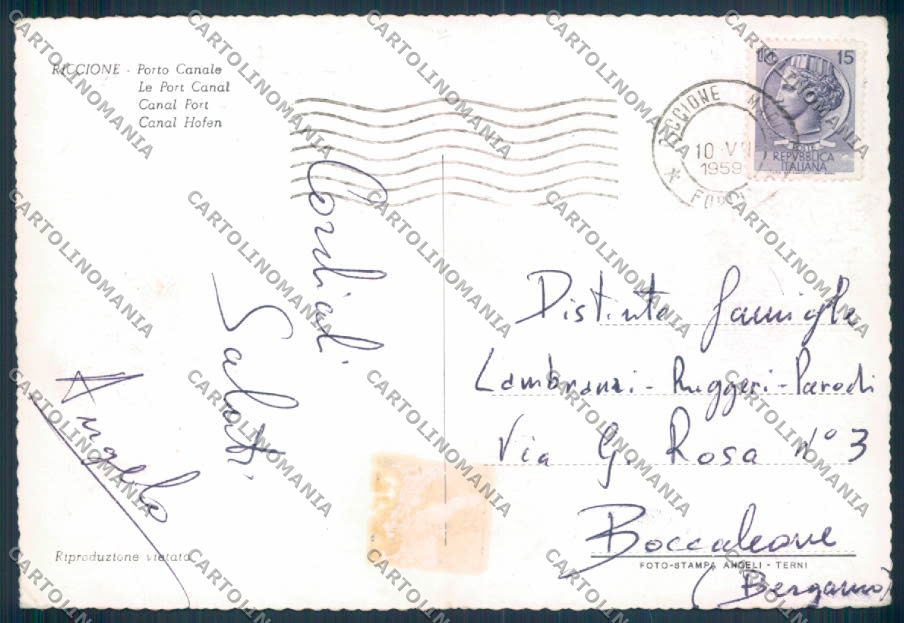 RICCIONE - Porto Canale
Le Port Canal
Canal Port
Canal Hofen
RICCIONE
10 V
1959
15
POSTE
REPVBBLICA
ITALIANA
Cordiali
Saluti
Angelo
Distinte famiglie
Lambranzi - Ruggeri - Parodi
Via G. Rosa N° 3
Boccaleone
(Bergamo)
Riproduzione vietata
FOTO-STAMPA ANGELI - TERNI
CARTOLINOMANIA